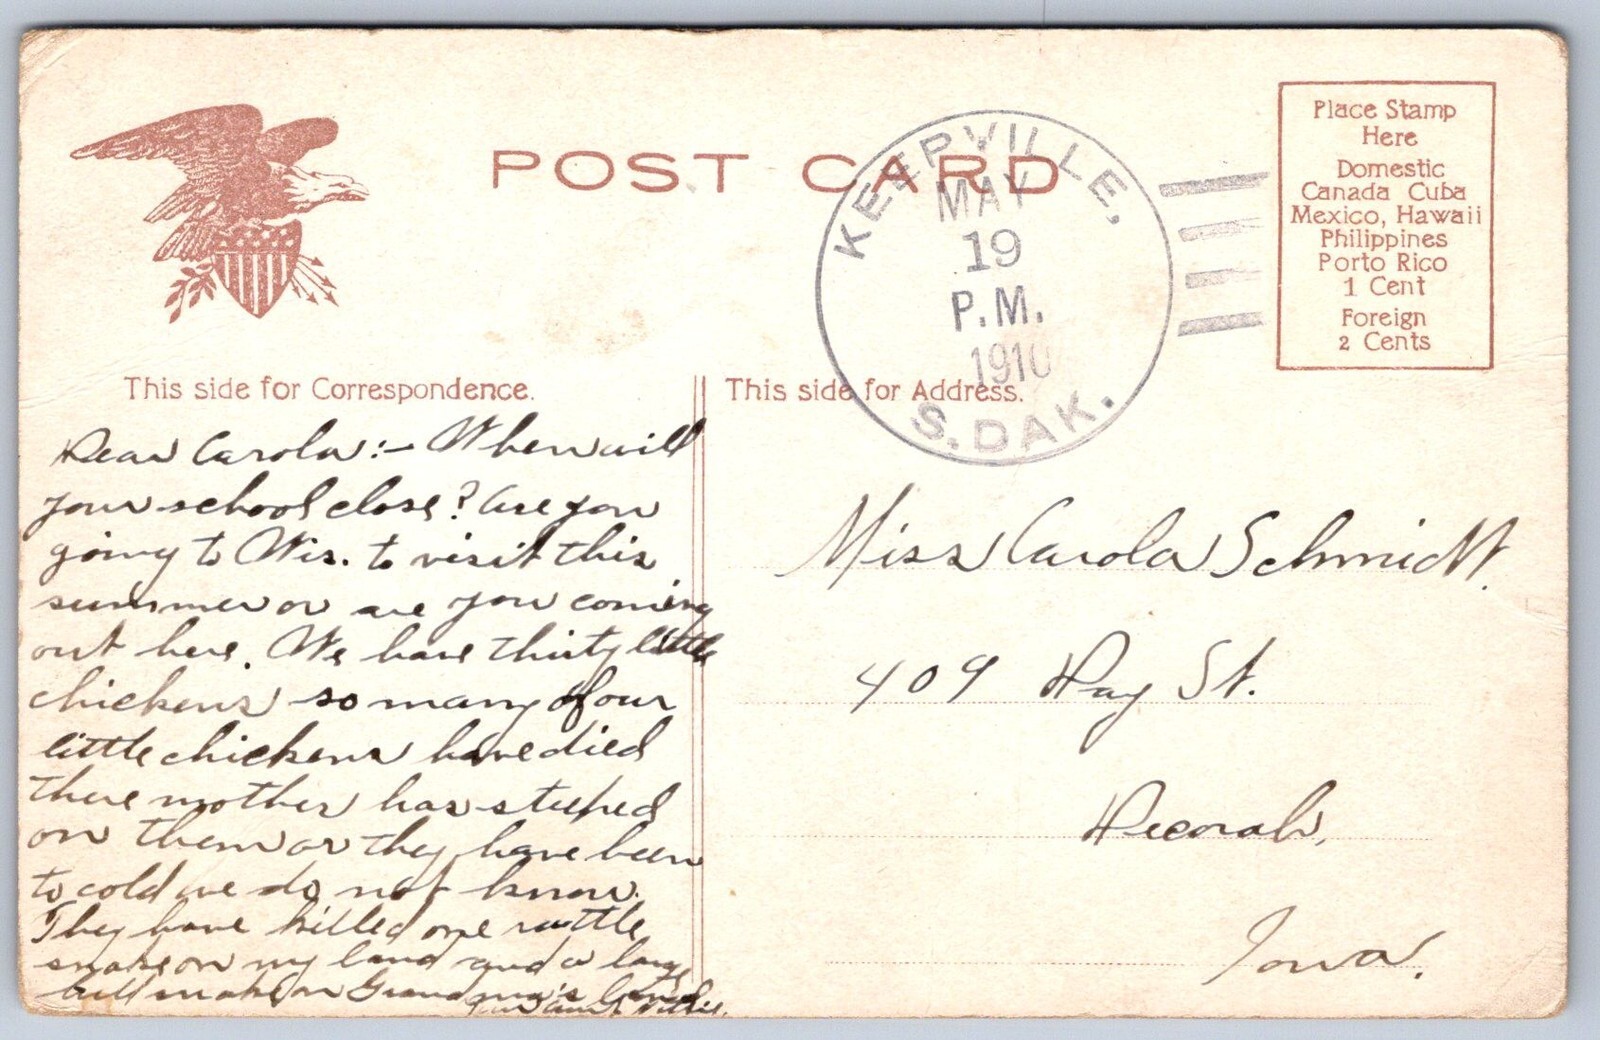 POST CARD
KEEPVILLE,
MAY
19
P.M.
1910
S.DAK.
Place Stamp
Here
Domestic
Canada Cuba
Mexico, Hawaii
Philippines
Porto Rico
1 Cent
Foreign
2 Cents
This side for Correspondence.
Dear Carola:- When will
your school close? Are you
going to Wis. to visit this
summer or are you coming
out here. We have thirty little
chickens so many of our
little chickens have died
there mother has steped
on them or they have been
to cold we do not know.
They have killed one rattle
snake on my land and a large
bull snake on Grandma's land
Your aunt
This side for Address.
Miss Carola Schmidt.
409 Day St.
Decorah,
Iowa.